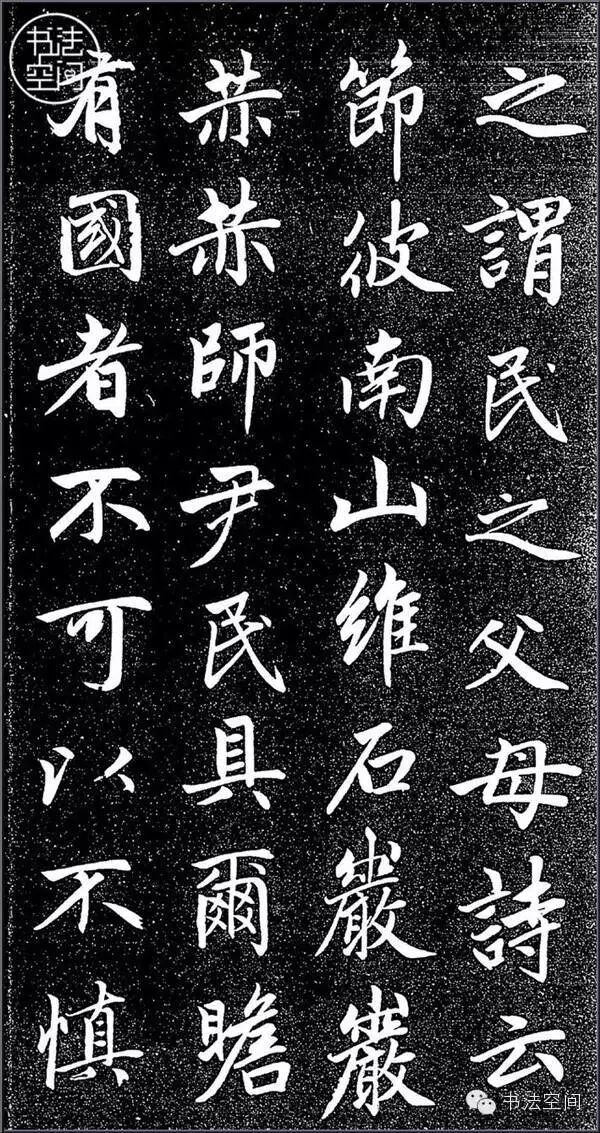 之謂民之父母詩云
節彼南山維石巖巖
赫赫師尹民具爾瞻
有國者不可以不慎
书法
空间
书法空间